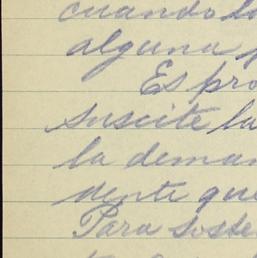 cuando la
alguna p
Es pro
suscite la
la deman
dente que
Para soste